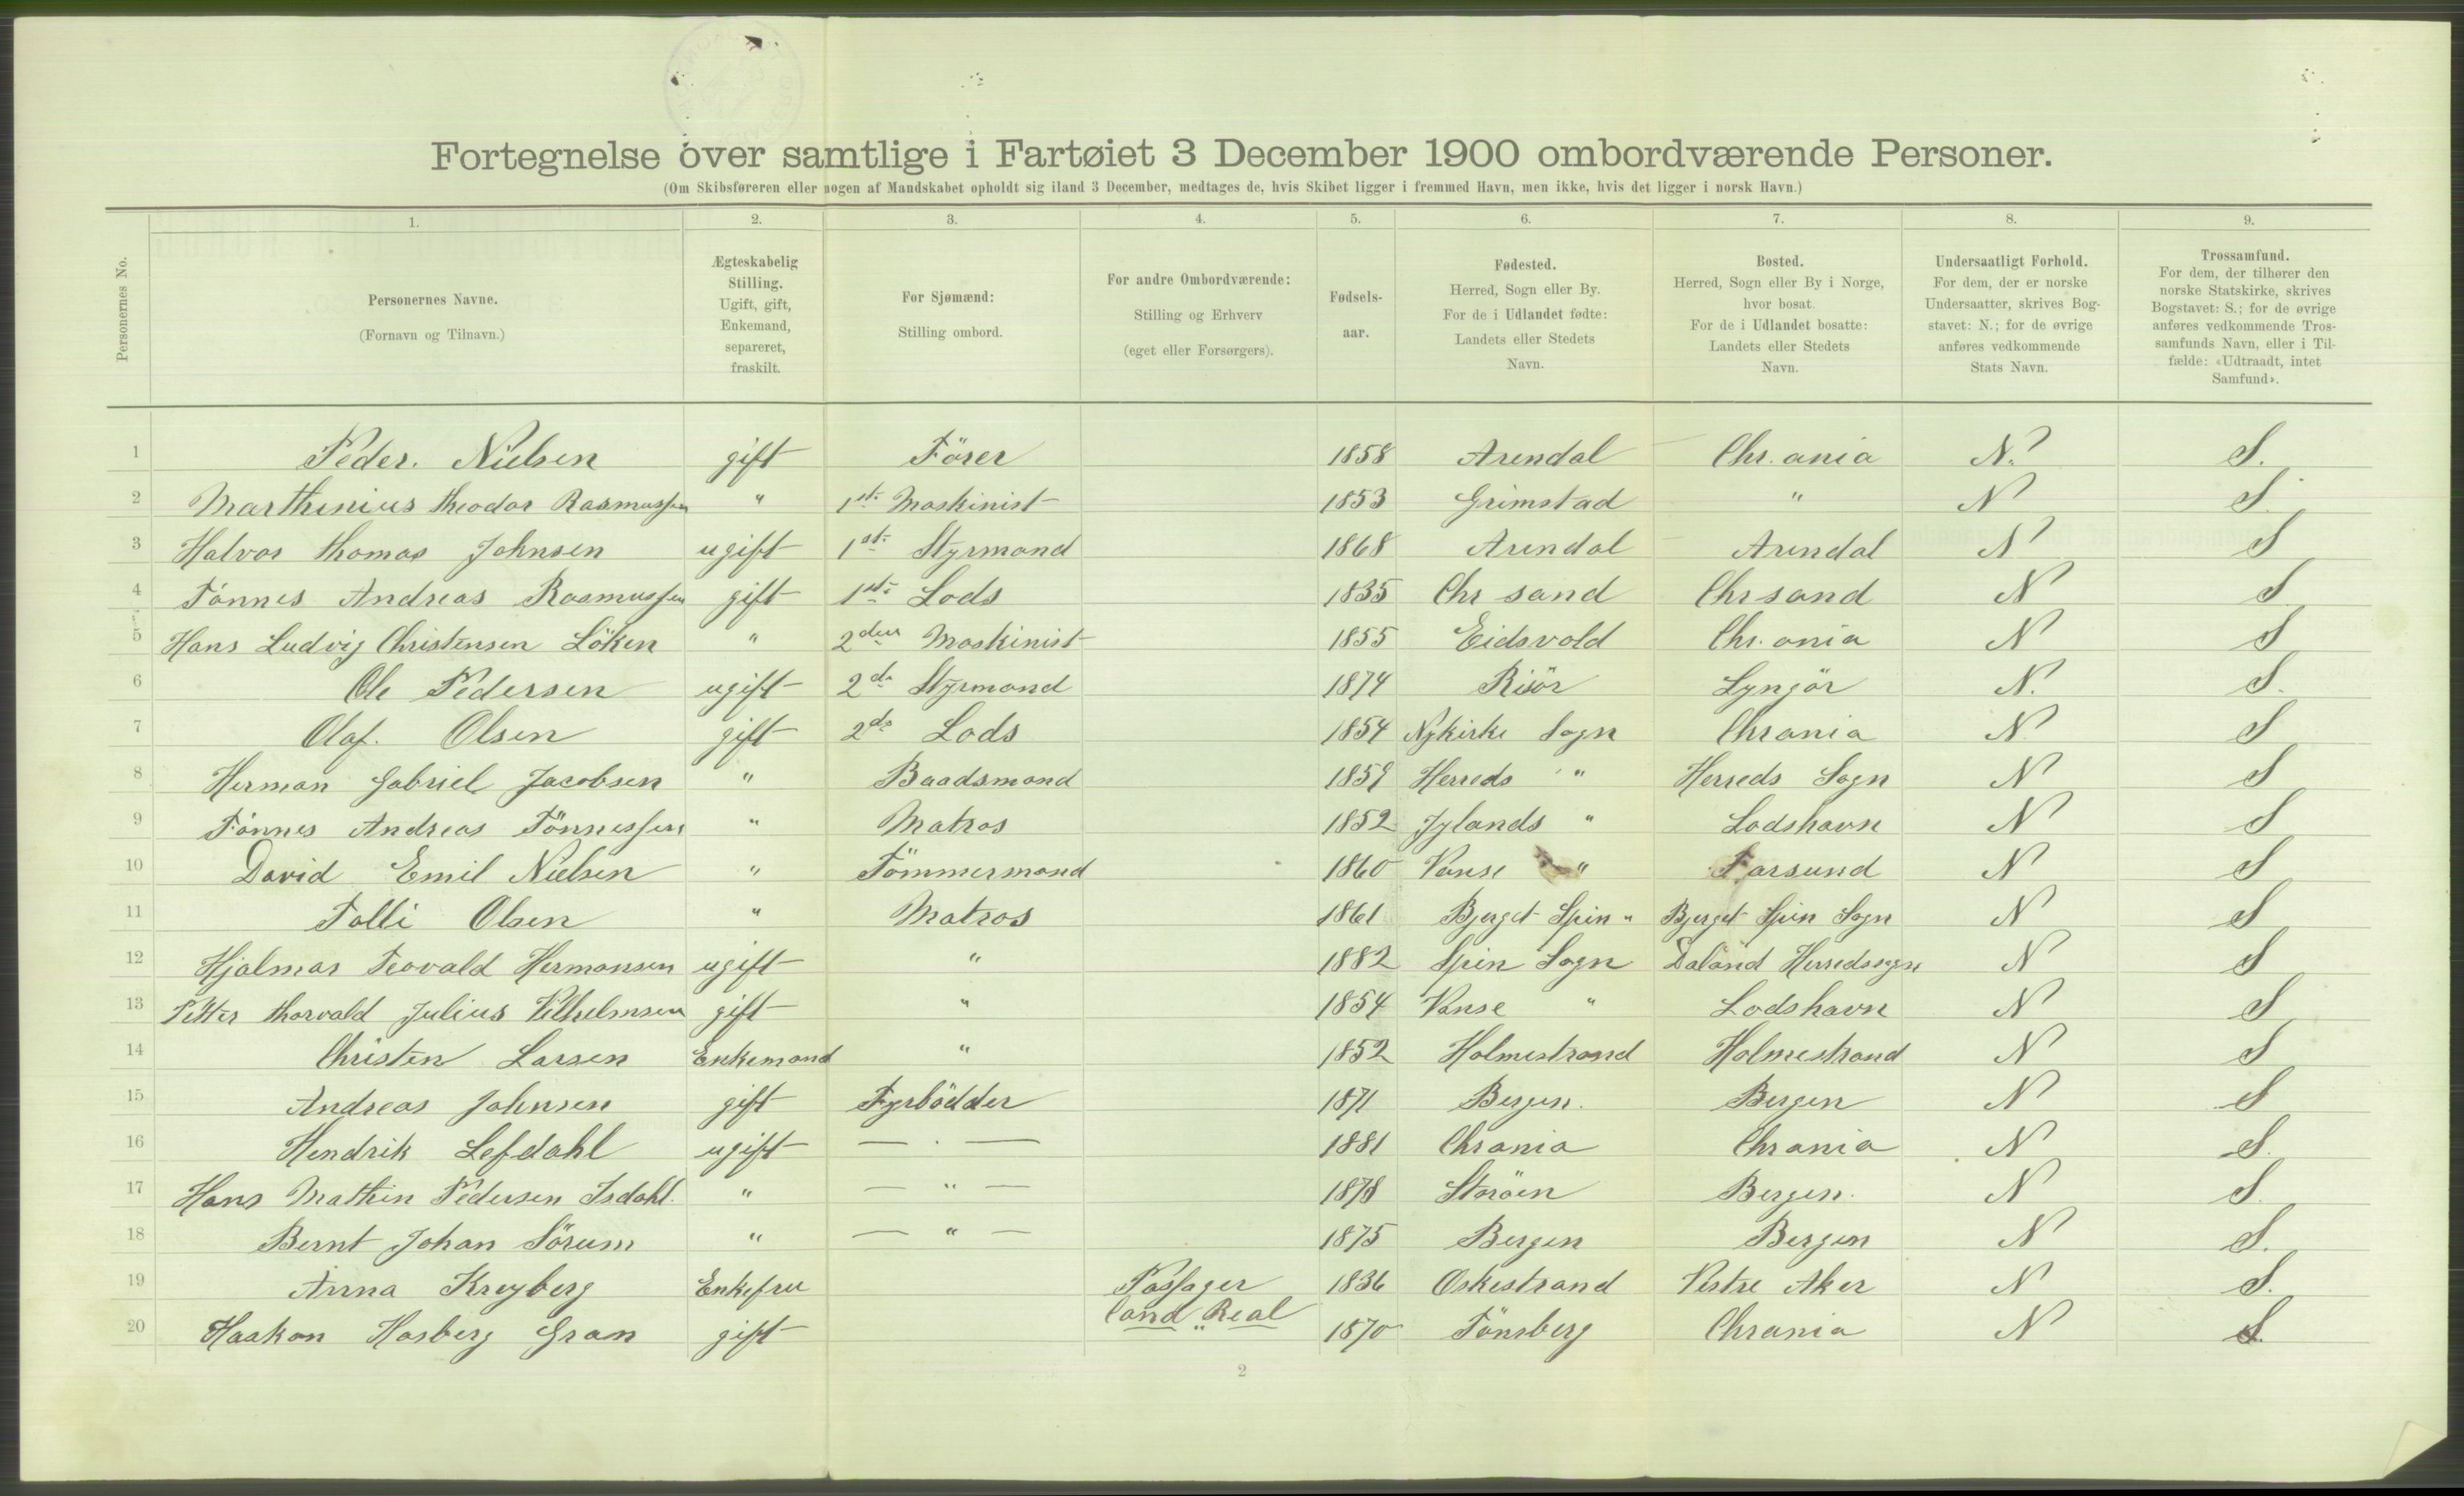 Fortegnelse over samtlige i Fartøiet 3 December 1900 ombordværende Personer.
(Om Skibsføreren eller nogen af Mandskabet opholdt sig iland 3 December, medtages de, hvis Skibet ligger i fremmed Havn, men ikke, hvis det ligger i norsk Havn.)
Personernes No.
1. 2. 3. 4. 5. 6. 7. 8. 9.
Personernes Navne.
(Fornavn og Tilnavn.)
Ægteskabelig
Stilling.
Ugift, gift,
Enkemand,
separeret,
fraskilt.
For Sjømænd:
Stilling ombord.
For andre Ombordværende:
Stilling og Erhverv
(eget eller Forsørgers).
Fødsels-
aar.
Fødested.
Herred, Sogn eller By.
For de i Udlandet fødte:
Landets eller Stedets
Navn.
Bosted.
Herred, Sogn eller By i Norge,
hvor bosat.
For de i Udlandet bosatte:
Landets eller Stedets
Navn.
Undersaatligt Forhold.
For dem, der er norske
Undersaatter, skrives Bog-
stavet: N.; for de øvrige
anføres vedkommende
Stats Navn.
Trossamfund.
For dem, der tilhører den
norske Statskirke, skrives
Bogstavet: S.; for de øvrige
anføres vedkommende Tros-
samfunds Navn, eller i Til-
fælde: «Udtraadt, intet
Samfund».
1 Peder. Nielsen gift Förer 1858 Arendal Chr. ania N. S.
2 Marthinius Theodor Rasmussen " 1ste Maskinist 1853 Grimstad " N S.
3 Halvor Thomas Johnsen ugift 1ste Styrmand 1868 Arendal Arendal N S
4 Tönnes Andreas Rasmussen gift 1ste Lods 1835 Chr sand Chrsand N S
5 Hans Ludvig Christensen Löken " 2den Maskinist 1855 Eidsvold Chr. ania N S
6 Ole Pedersen ugift 2de Styrmand 1874 Risör Lyngör N. S.
7 Olaf. Olsen gift 2de Lods 1854 Nykirke Sogn Chrania N S
8 Herman Gabriel Jacobsen " Baadsmand 1859 Herreds " Herreds Sogn N S
9 Tönnes Andreas Tönnessen " Matros 1852 Jylands " Lodshavn N S
10 David Emil Nielsen " Tömmermand 1860 Vanse " Farsund N S
11 Talli Olsen " Matros 1861 Bjerget Spin " Bjerget Spin Sogn N S
12 Hjalmar Teovald Hermansen ugift " 1882 Spin Sogn Daland Herredsogn N S
13 Petter Thorvald Julius Vilhelmsen gift " 1854 Vanse " Lodshavn N S
14 Christen Larsen Enkemand " 1852 Holmestrand Holmestrand N S
15 Andreas Johnsen gift Fyrbödder 1871 Bergen. Bergen N S
16 Hendrik Lefdahl ugift — . — 1881 Chrania Chrania N S.
17 Hans Mathin Pedersen Isdahl. " — " — 1878 Storöen Bergen. N S.
18 Bernt Johan Sörum " — " — 1875 Bergen Bergen N S.
19 Anna Kreyberg Enkefru Passager 1836 Oskestrand Vestre Aker N S.
20 Haakon Hasberg Gran gift Cand. Real 1870 Tönsberg Chrania N S.
2